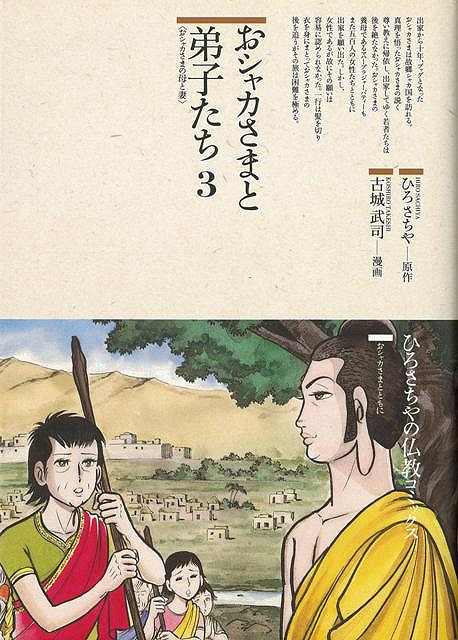 出家から十年、ブッダとなった
おシャカさまは故郷シャカ国を訪れる。
真理を悟ったおシャカさまの説く
尊い教えに帰依し、出家してゆく若者たちは
後を絶たなかった。おシャカさまの
養母であるマハープラジャーパティーも
また五百人の女性たちとともに
出家を願い出た。しかし、
女性であるが故にその願いは
容易に認められなかった。一行は髪を切り
衣を身にまとっておシャカさまの
後を追うがその旅は困難を極める。
おシャカさまと
弟子たち 3
〈おシャカさまの母と妻〉
HIRO SACHIYA
ひろさちや――原作
KOSHIRO TAKESHI
古城武司――漫画
ひろさちやの仏教コミックス
おシャカさまとともに